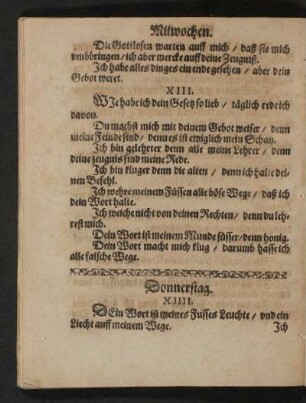 Mitwochen.
Die Gottlosen warten auff mich / daß sie mich
vmbbringen / ich aber mercke auff deine Zeugniß.
Ich habe alles dinges ein ende gesehen / aber dein
Gebot weret.
XIII.
WJe habe ich dein Gesetz so lieb / täglich rede ich
davon.
Du machst mich mit deinem Gebot weiser / denn
meine Feinde sind / denn es ist ewiglich mein Schatz.
Ich bin gelehrter denn alle meine Lehrer / denn
deine zeugnis sind meine Rede.
Ich bin kluger denn die alten / denn ich halte dei-
nen Befehl.
Ich wehre meinem Füssen alle böse Wege / daß ich
dein Wort halte.
Ich weiche nicht von deinen Rechten / denn du leh-
rest mich.
Dein Wort ist meinem Munde süsser / denn honig.
Dein Wort macht mich klug / darumb hasse ich
alle falsche Wege.
Donnerstag.
XIIII.
DEin Wort ist meines Fusses Leuchte / vnd ein
Liecht auff meinem Wege.
Ich